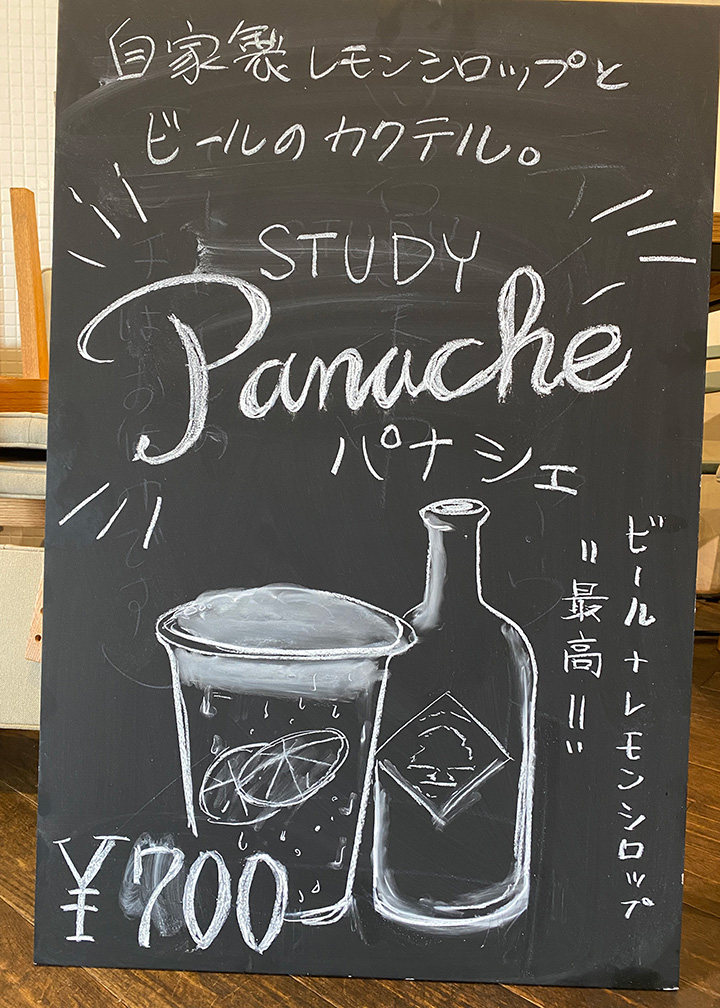 自家製レモンシロップと
ビールのカクテル。
STUDY
Panaché
パナシェ
ビール+レモンシロップ
=最高!!
¥700